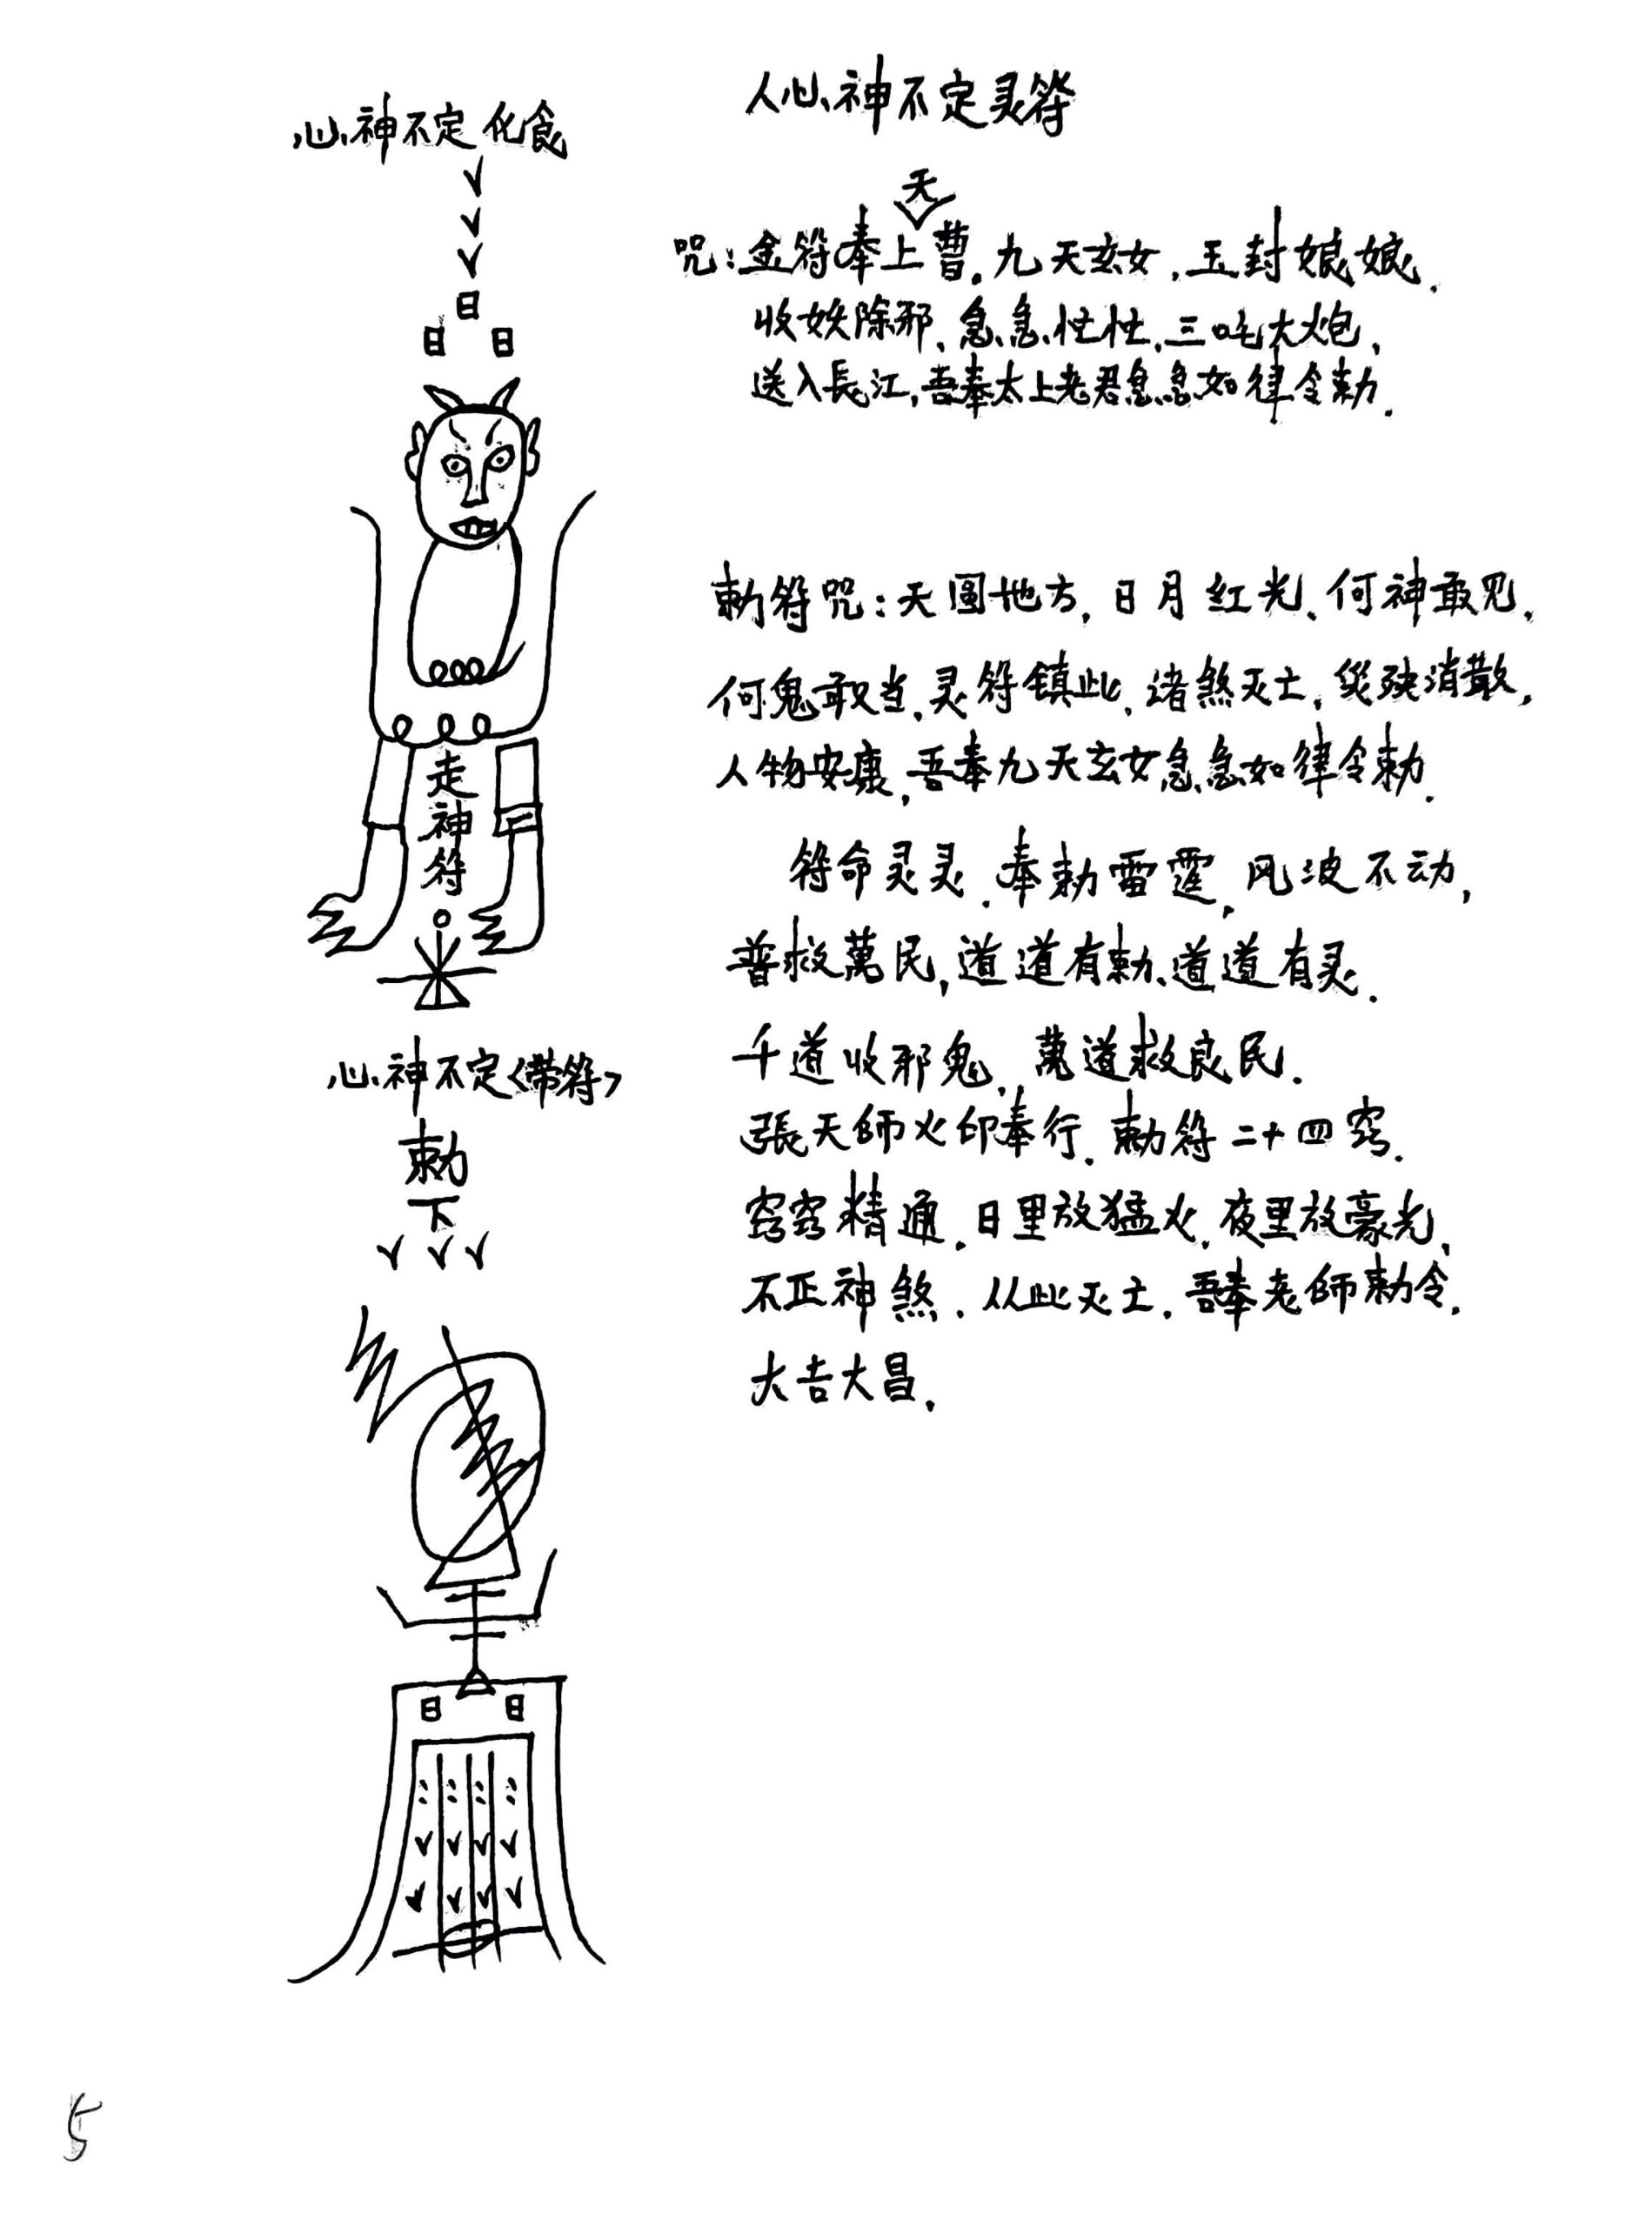 人心神不定灵符
天
咒:金符奉上曹.九天玄女,玉封娘娘.
收妖除邪、急急忙忙.三吨大炮,
送入長江,吾奉太上老君急急如律令勅.
勅符咒:天圓地方,日月红光、何神敢见,
何鬼敢当.灵符镇此,诸煞灭亡,災殃消散,
人物安康,吾奉九天玄女急急如律令勅.
符命灵灵.奉勅雷霆,风波不动,
普救萬民,道道有勅、道道有灵.
千道收邪鬼,萬道救良民.
張天師火印奉行.勅符二十四窍.
窍窍精通.日里放猛火,夜里放豪光,
不正神煞.从此灭亡.吾奉老師勅令.
大吉大昌.
心神不定化食
日
日 日
走
神
符
心神不定<带符>
勅
下
日 日
5